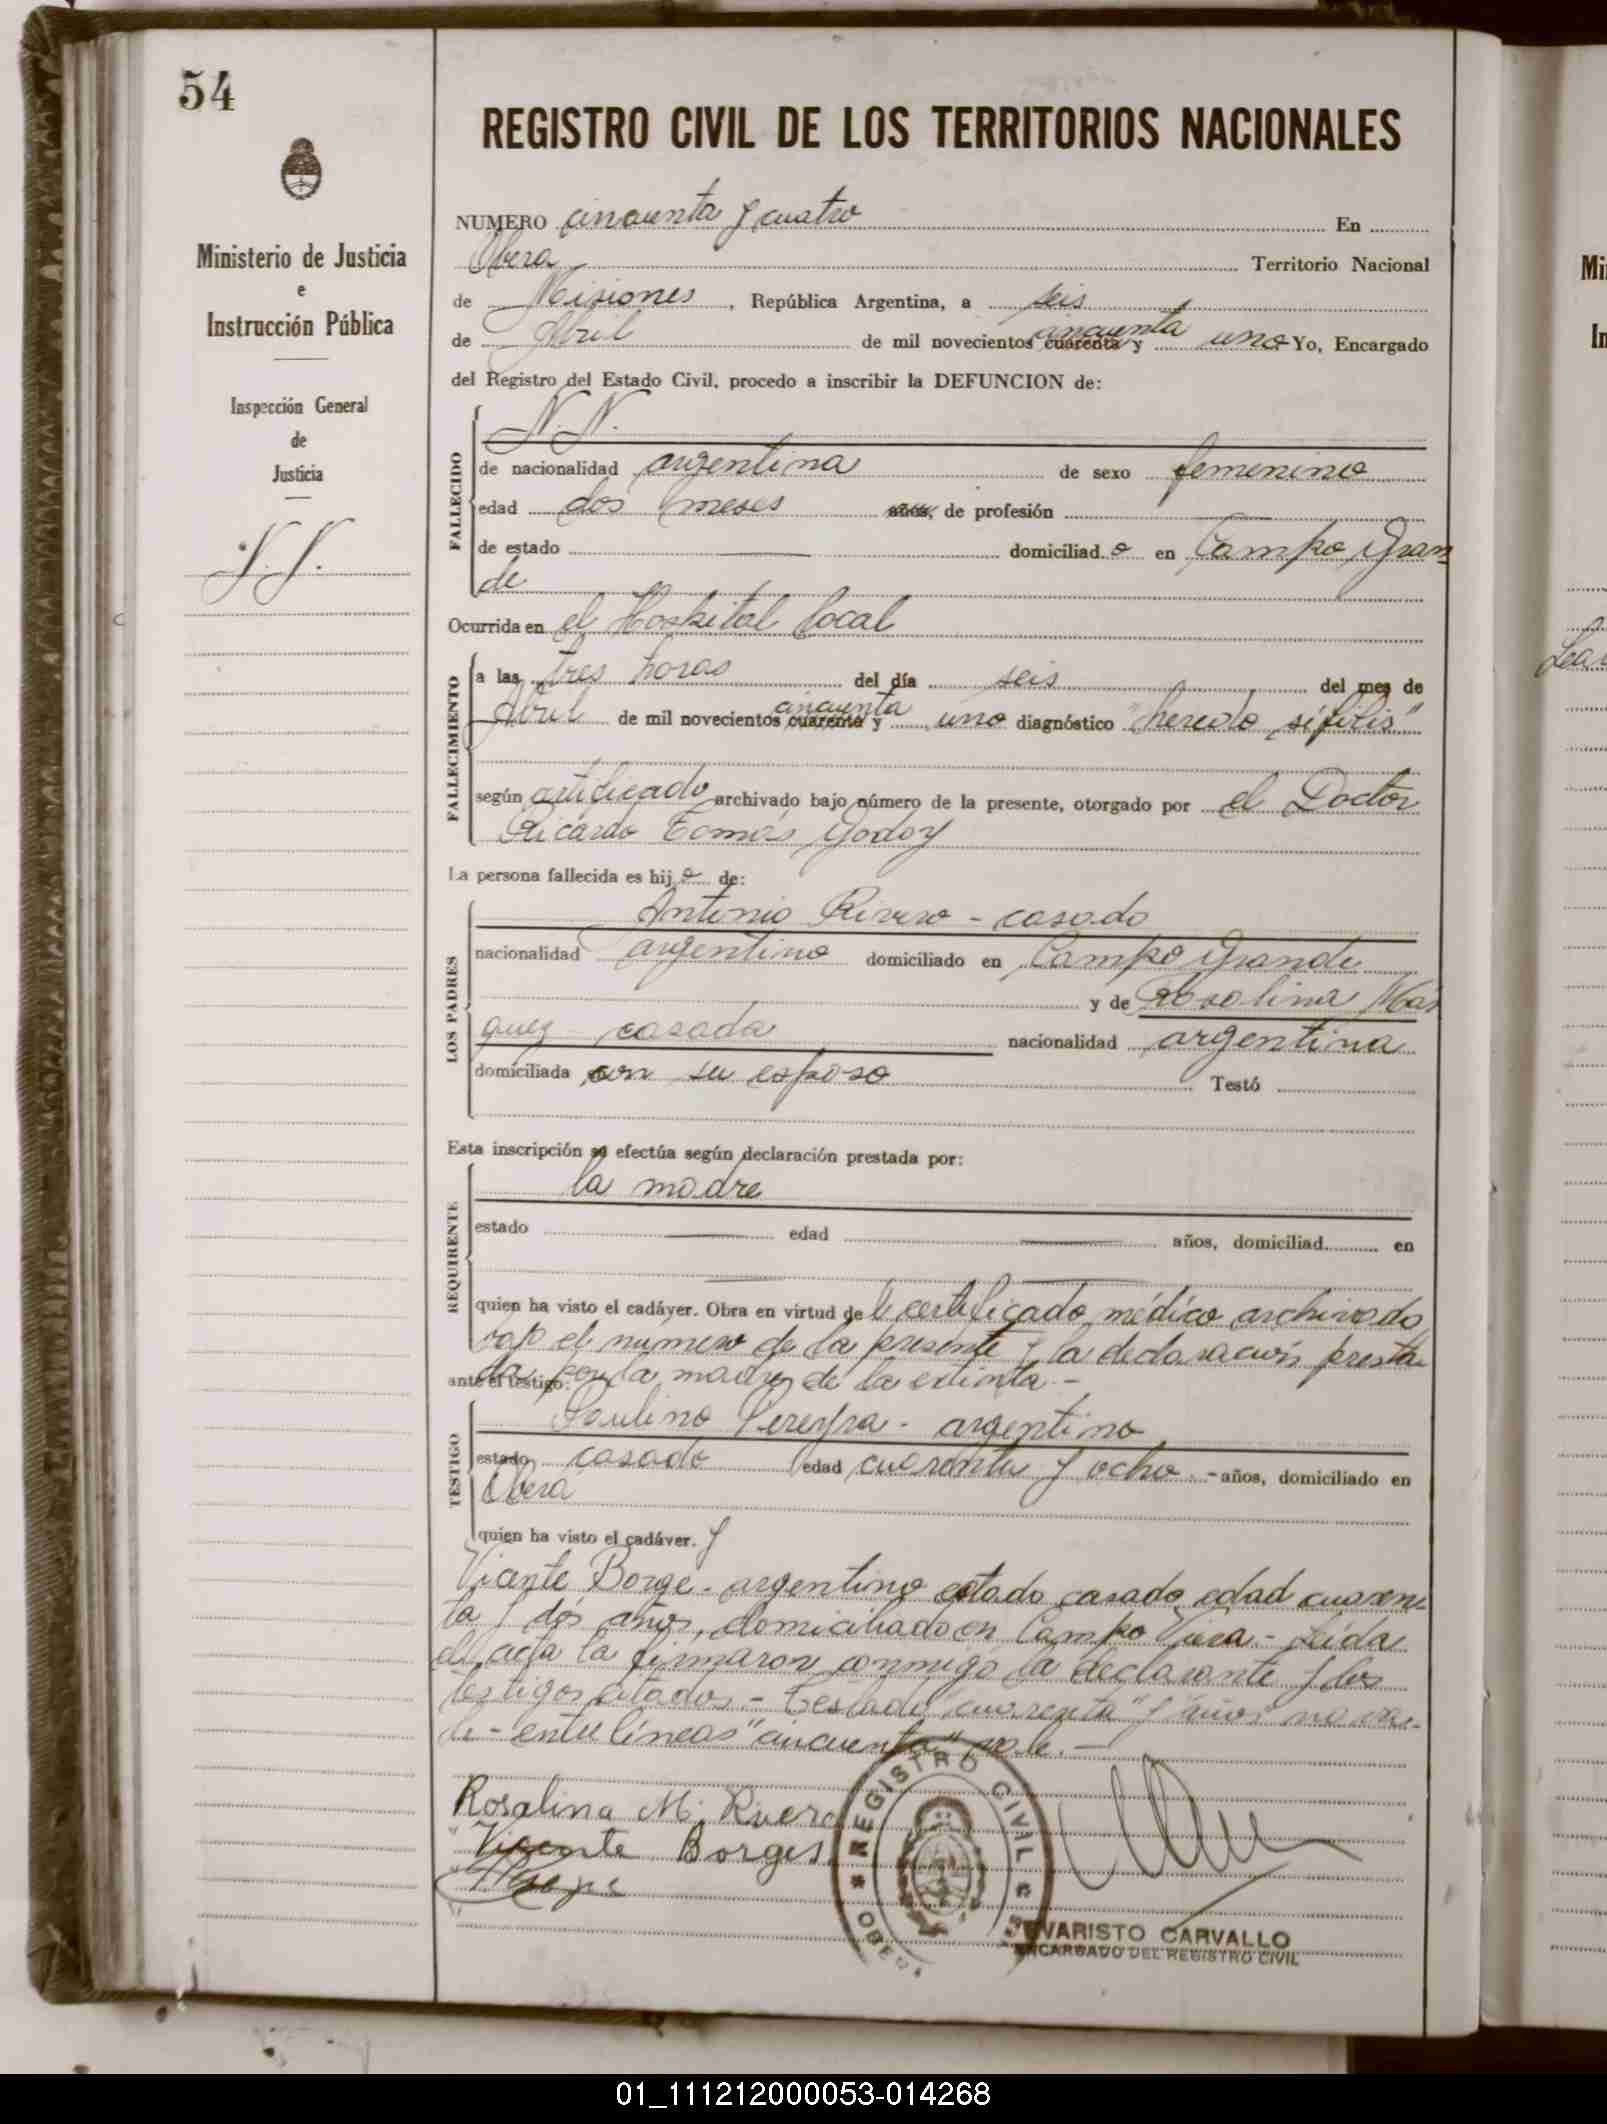 54
REGISTRO CIVIL DE LOS TERRITORIOS NACIONALES
Ministerio de Justicia
e
Instrucción Pública
Inspección General
de
Justicia
N.N.
NUMERO cincuenta y cuatro En
Obera Territorio Nacional
de Misiones, República Argentina, a seis
de Abril de mil novecientos cuarenta y cincuenta uno Yo, Encargado
del Registro del Estado Civil, procedo a inscribir la DEFUNCION de:
FALLECIDO
N.N.
de nacionalidad argentina de sexo femenino
edad dos meses años, de profesión
de estado domiciliado en Campo Gran
de
Ocurrida en el Hospital local
FALLECIMIENTO
a las tres horas del día seis del mes de
Abril de mil novecientos cuarenta y cincuenta uno diagnóstico "heredo sífilis"
según certificado archivado bajo número de la presente, otorgado por el Doctor
Ricardo Tomás Godoy
La persona fallecida es hijo de:
LOS PADRES
Antonio Rivero - casado
nacionalidad argentino domiciliado en Campo Grande
y de Rosolina Mar
quez casada nacionalidad argentina
domiciliada con su esposo Testó
Esta inscripción se efectúa según declaración prestada por:
REQUIRENTE
la madre
estado edad años, domiciliad en
quien ha visto el cadáver. Obra en virtud del certificado médico archivado
bajo el numero de la presente y la declaración presta
da por la madre de la extinta -
ante el testigo:
TESTIGO
Paulino Pereyra - argentino
estado casado edad cuarenta y ocho - años, domiciliado en
Oberá
quien ha visto el cadáver. y
Vicente Borge - argentino estado casado edad cuaren
ta y dos años, domiciliado en Campo Viera - Leída
el acta la firmaron conmigo la declarante y los
testigos citados - Testado "cuarenta" y "años" no va-
le - entre líneas "cincuenta" vale. -
Rosalina M. Rivero
Vicente Borges
REGISTRO CIVIL
EVARISTO CARVALLO
ENCARGADO DEL REGISTRO CIVIL
01_111212000053-014268